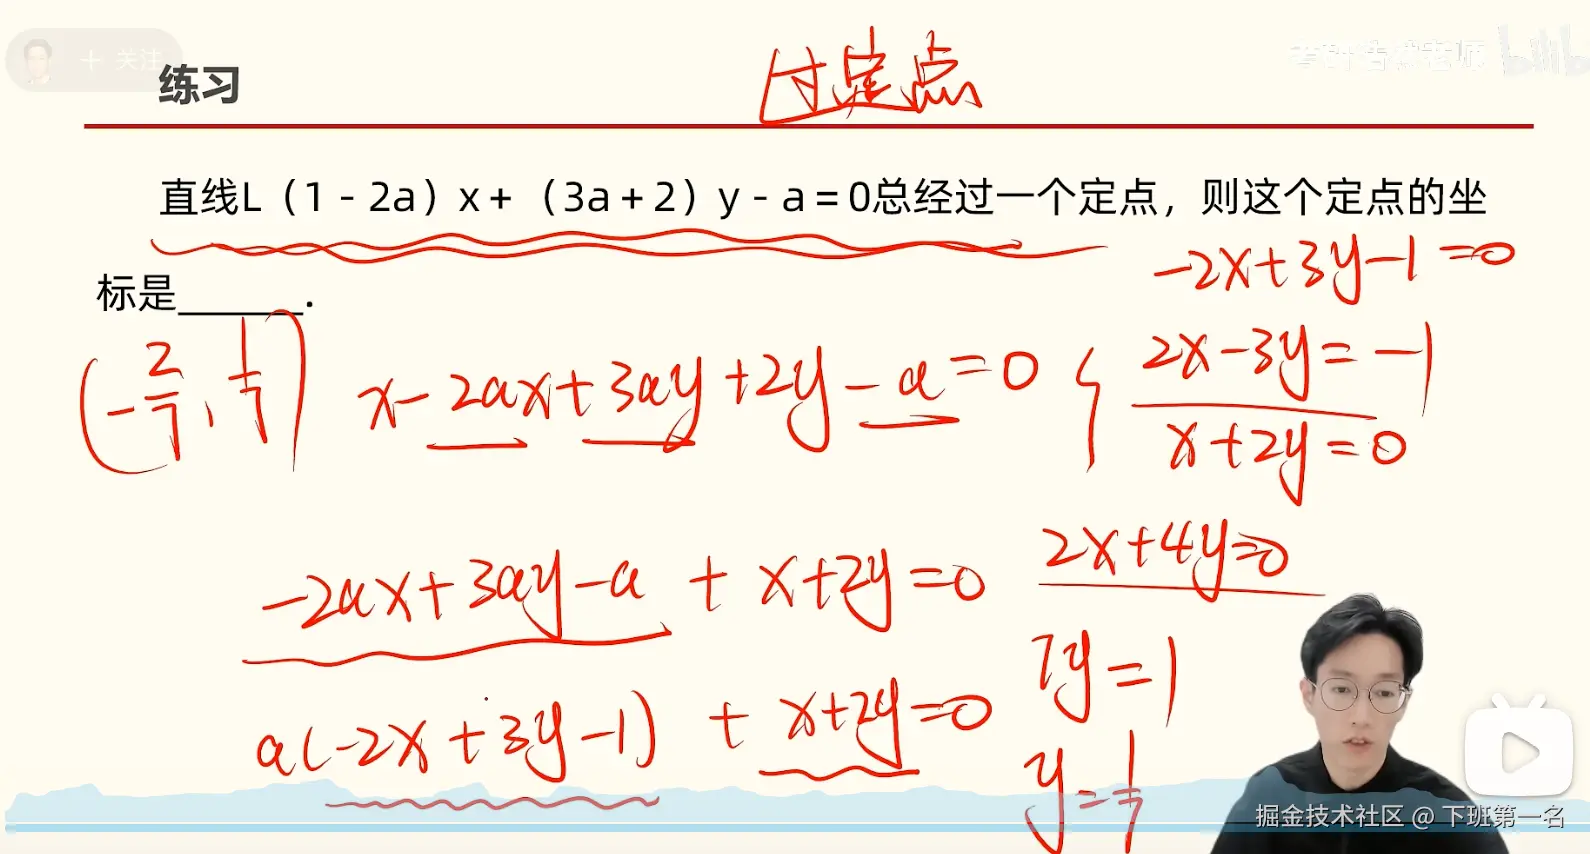 + 关注
练习
过定点
直线L（1-2a）x+（3a+2）y-a=0总经过一个定点，则这个定点的坐
标是______.
-2x+3y-1=0
(-2/7, 1/7)
x-2ax+3ay+2y-a=0
{2x-3y=-1
x+2y=0
-2ax+3ay-a + x+2y=0
2x+4y=0
7y=1
a(-2x+3y-1) + x+2y=0
y=1/7
掘金技术社区 @ 下班第一名